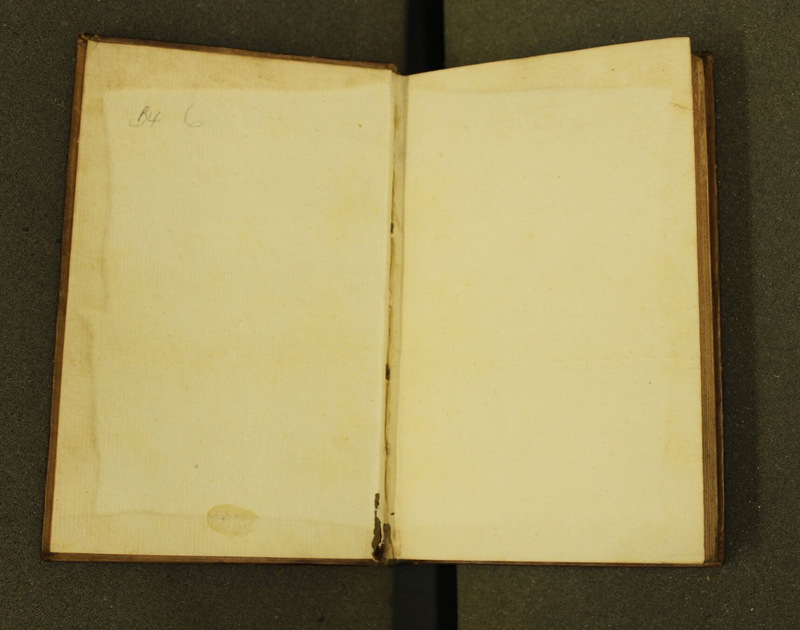 B4 6